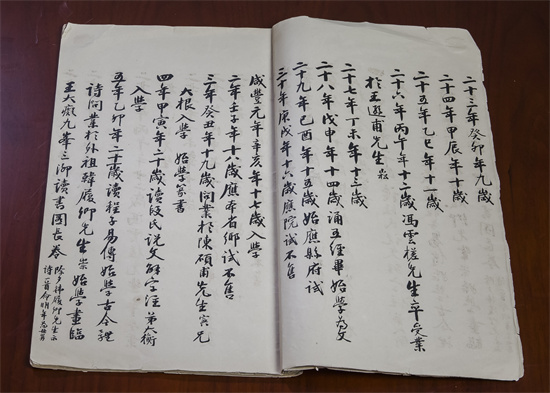 二十三年癸卯年九歲
二十四年甲辰年十歲
二十五年乙巳年十一歲
二十六年丙午年十二歲馮雲槎先生卒受業
於王遐甫先生
二十七年丁未年十三歲
二十八年戊申年十四歲誦五經畢始學為文
二十九年己酉年十五歲始應縣府試
三十年庚戌年十六歲應院試不售
咸豐元年辛亥年十七歲入學
二年壬子年十八歲應本省鄉試不售
三年癸丑年十九歲問業於陳碩甫先生奐兄
大根入學 始學篆書
四年甲寅年二十歲讀段氏說文解字注 弟大衡
入學
五年乙卯年二十一歲讀程子易傳始學古今體
詩問業於外祖韓履卿先生崇始學畫臨
王大癡九峯三泖讀書圖長卷
除夕拜履卿先生示
詩一首命明年